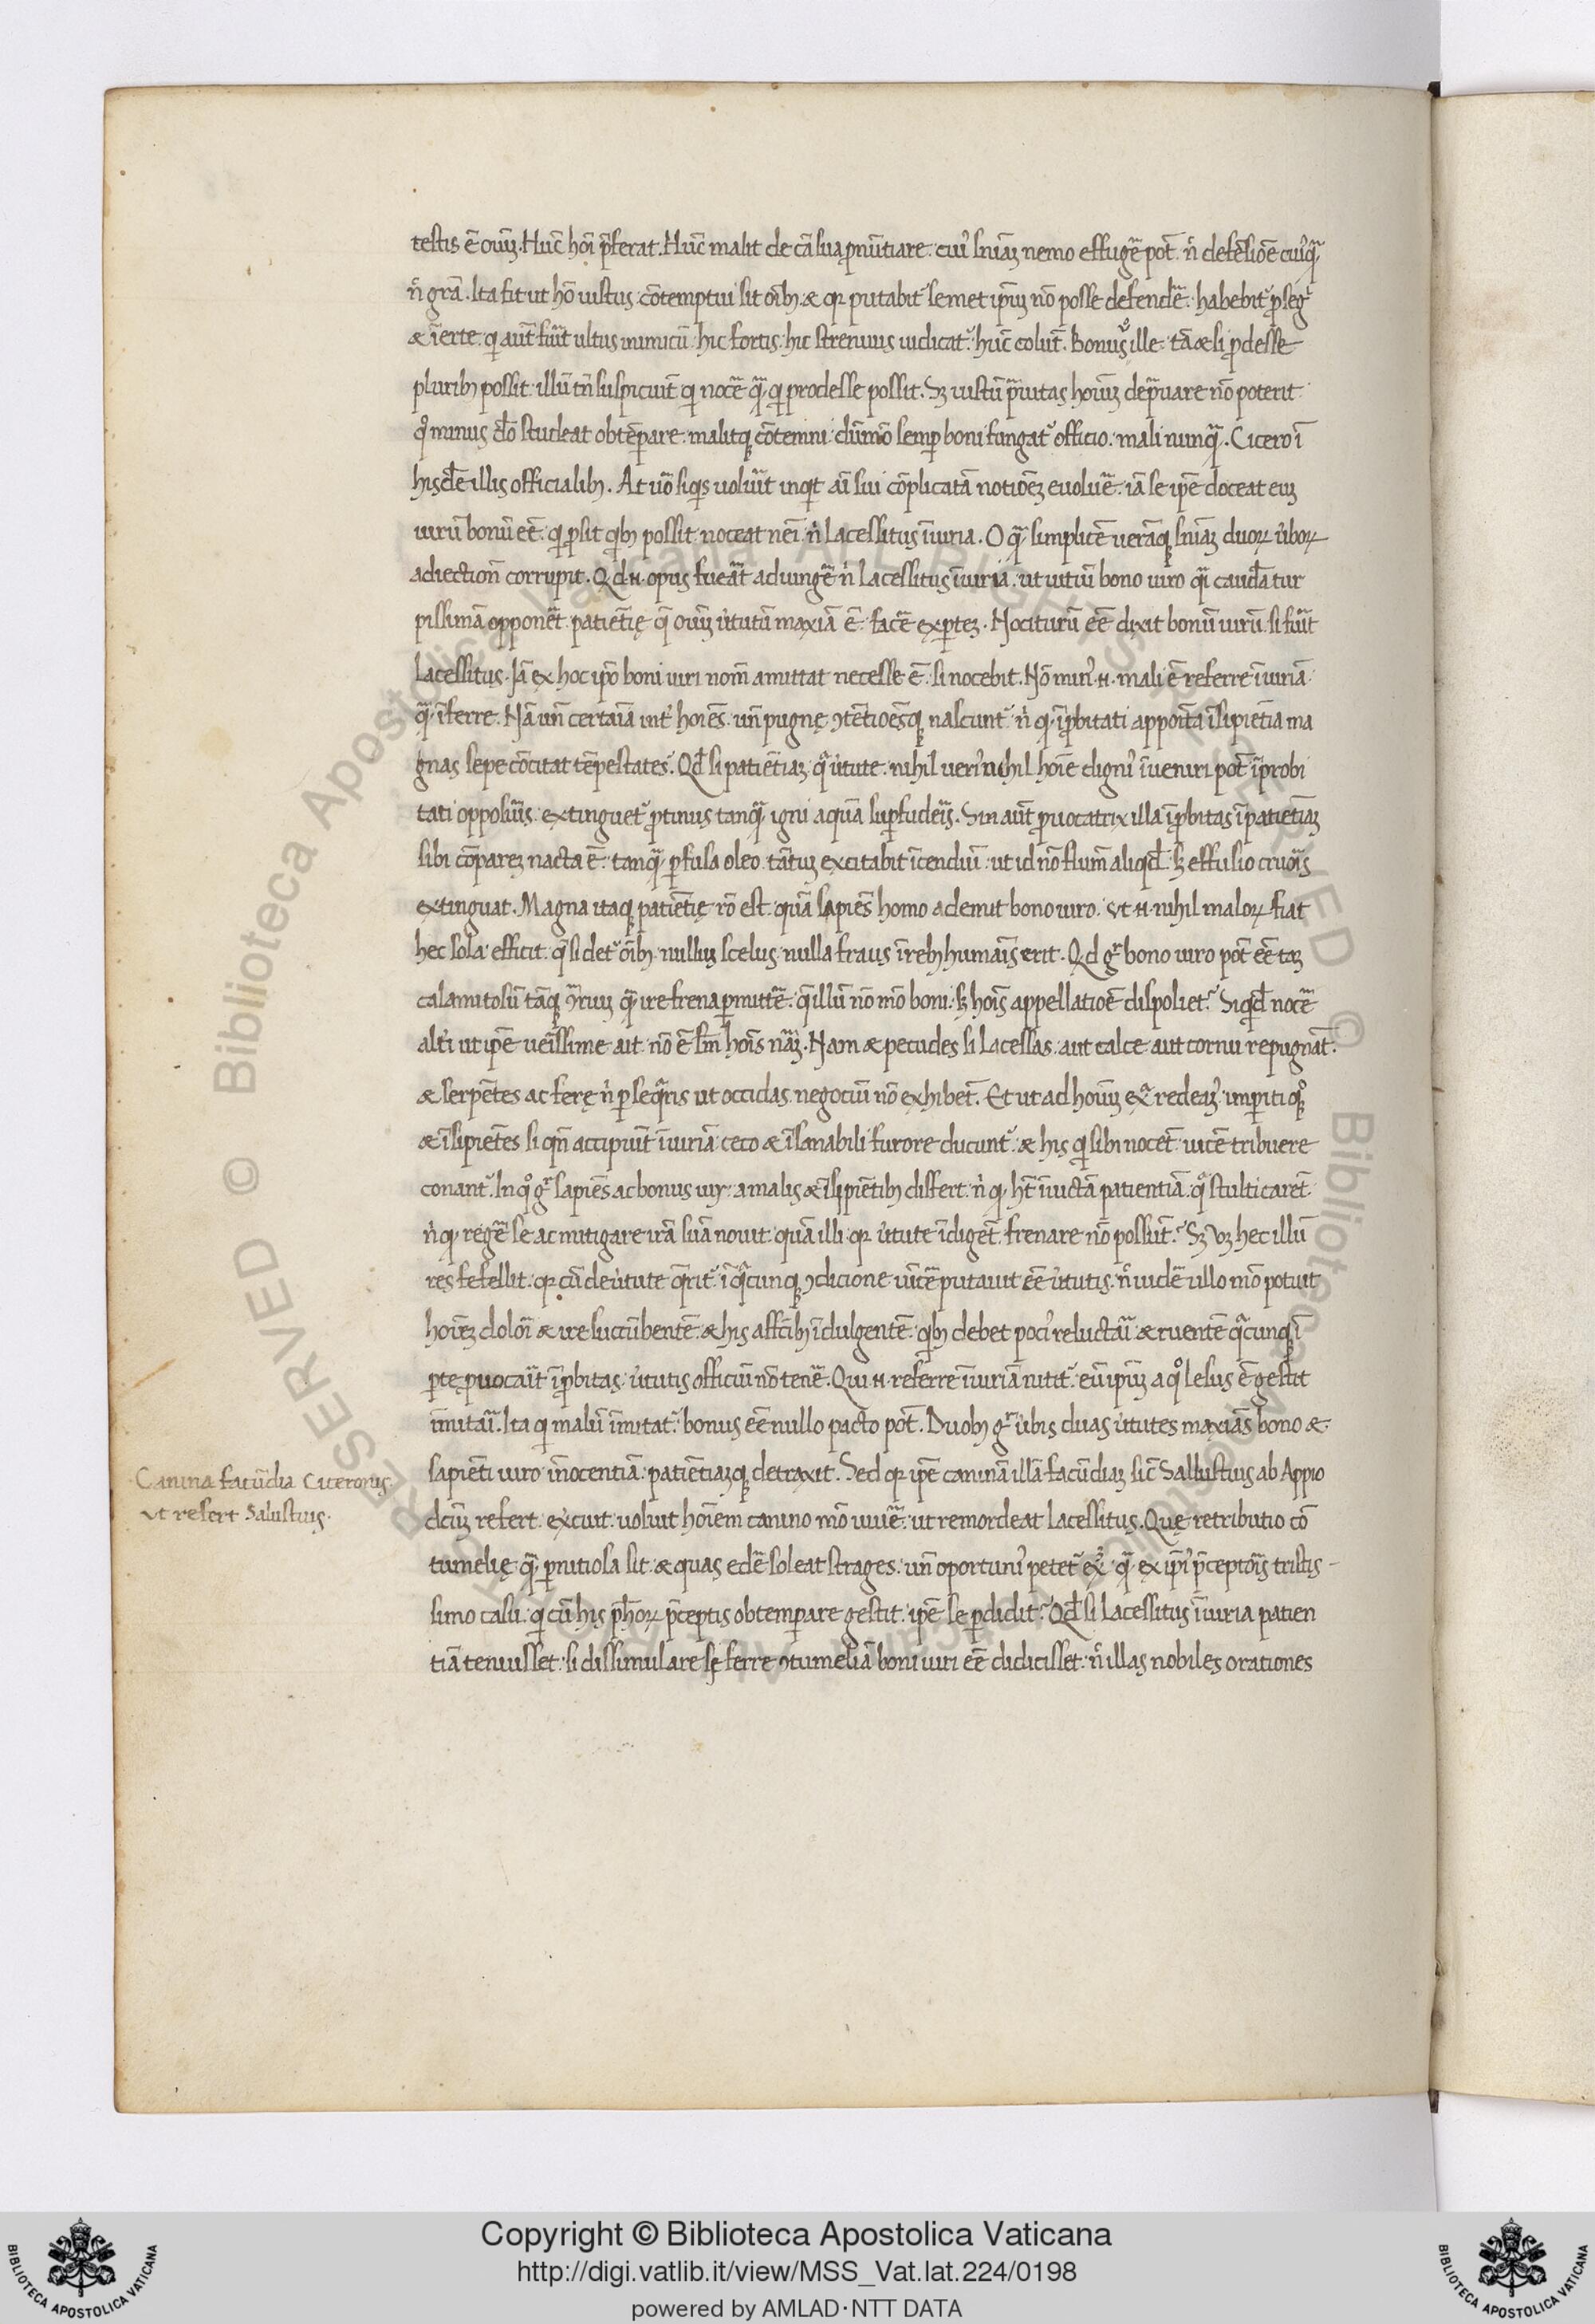 testis ē oiūꝫ. Hūc hoī p̄ferat. Hūc malit de cā̄ sua ꝓnūtiare. cuiꝰ sn̄iaꝫ nemo effugē pōt. n̄ defēsiōe cuiꝰq̄ꝫ
n̄ grā. Ita fit ut hō iustus cōtemptui sit oībꝫ. & qꝛ putabit᷑ semet ipm̄ nō posse defendē. habebit᷑ ꝓ segⁱ
& īerte. qi aūt fuīt ultus inimicū. hic fortis. hic strenuus iudicat᷑. hūc colūt. Bonus ů ille tā & si ꝓdesse
pluribꝫ possit. illū tn̄ suspiciūt qi nocē q̄ꝫ qi prodesse possit. Sꝫ iustū p̄uitas hoīuꝫ dep̄uare nō poterit
qͦ minus dō studeat obtēpare. malitqꝫ cōtemni. dūmō semꝑ boni fungat᷑ officio. mali nunq̄ꝫ. Cicero ī
hisdē illis officialibꝫ. At uō siq̇s uoluīt inqit aī sui cōplicatā notiōeꝫ euoluē. iā se ipē doceat euꝫ
uirū bonū eē. qi ꝓsit qibꝫ possit noceat neī n̄ lacessitus īiuria. O q̄ꝫ simplicē ueramqꝫ sn̄iaꝫ duoꝝ ůboꝝ
adiectiōn corrupit. Qd .n. opus fueāt adiungē n̄ lacessitus īiuria. ut uitiū bono uiro qͣi caudā tur
pissimā opponēt. patiētię q̄ oiūꝫ v̇tutū maxīa ē. facē exꝑteꝫ. Nociturū eē dixit bonū uirū si fuīt
lacessitus. Jā ex hoc ipō boni uiri nom̄ amittat necesse ē. si nocebit. Nō minꝰ .n. mali ē referre īiuriā
q̄ꝫ īferre. Nā un̄ certaīa int᷑ hoīes. un̄ pugnę ꝯtētioēsqꝫ nascunt᷑. n̄ qꝫ īꝓbitati apposīta īsipiētia ma
gnas sepe cōcitat tēpestates. Qd̄ si patiētiaꝫ qͣ v̇tute nihil ueriꝰ nihil hoīe digniꝰ īueniri pōt īprobi
tati opposuīs. extinguet᷑ ꝓtinus tanq̄ꝫ igni aquā suꝑfudeīs. Sin aūt ꝓuocatrix illa īꝓbitas īpatiētiaꝫ
sibi cōpareꝫ nacta ē. tanq̄ꝫ ꝑfusa oleo. tātuꝫ excitabit īcendiū. ut id nō flum̄ aliqd̄. sꝫ effusio cruoīs
extinguat. Magna itaqꝫ patiētię rō est. quā sapiēs homo ademit bono uiro. Ut .n. nihil maloꝝ fiat
hec sola efficit. q̄ si det᷑ oībꝫ. nulluꝫ scelus. nulla fraus ī rebꝫ humaīs erit. Qd gͥ bono uiro pōt eē taꝫ
calamitosū tāqꝫ ꝯͬriuꝫ q̄ꝫ ire frena ꝑmittē. q̄ illū nō mō boni. sꝫ hoīs appellatioē dispoliet᷑. Siqd̄ nocē
alt᷑i ut ipē ueīssime ait. nō ē sm̄ hoīs nāꝫ. Nam & pecudes si lacessas. aut calce aut cornu repugnāt.
& serpētes ac ferę n̄ ꝑseqͣris ut occidas. negociū nō exhibēt. Et ut ad hoīuꝫ exͣ redeaꝰ. imꝑiti qͦqꝫ
& īsipiētes si qn̄ accipiūt īiuriā. ceco & īsanabili furore ducunt᷑. & his qi sibi nocēt uicē tribuere
conant᷑. In qͦ gͥ sapiēs ac bonus uir a malis & īsipiētibꝫ differt. n̄ qꝫ hēt īuictā patientiā. qͣ stulti carēt
n̄ qꝫ regē se ac mitigare irā suā nouit. quā illi qꝛ v̇tute īdigēt. frenare nō possūt. Sꝫ uꝫ hec illū
res fefellit. qꝛ cū de v̇tute qͣrit᷑. ī qͣcunqꝫ ꝯdicione uīcē putauit eē v̇tutis. n̄ uidē ullo mō potuit
hoīeꝫ doloī & ire succūbentē. & his affectibꝫ īdulgentē. qibꝫ debet pociꝰ reluctāī. & ruentē qͣcunqꝫ ī
ꝑte ꝓuocaīt īꝓbitas. v̇tutis officiū nō tenē. Qui .n. referre īiuriā nitit᷑. eūīpm̄ a qͦ lesus ē gestit
īmitāī. Ita qi malū īmitat᷑. bonus eē nullo pacto pōt. Duobꝫ gͥ ůbis duas v̇tutes maxīas bono &
sapiēti uiro īnocentiā. patiētiaꝫqꝫ detraxit. Sed qꝛ ipē caninā illā facūdiaꝫ sic̄ Sallustius ab Appio
dcm̄ refert. excuit. uoluit hoīem canino mō uiuē. ut remordeat lacessitus. Quę retributio cō
tumelię q̄ꝫ ꝑnitiosa sit. & quas edē soleat strages. un̄ oportuniꝰ petet᷑ exͫ. q̄ꝫ ex ipiꝰ p̄ceptoīs tristis-
simo casu. qi cū his ph̄oꝝ p̄ceptis obtemꝑare gestit. ipē se ꝑdidit. Qd̄ si lacessitus īiuria patien
tiā tenuisset. si dissimulare se ferre ꝯtumeliā boni uiri eē didicisset. n̄ illas nobiles orationes
Canina facūdia Ciceronis
ut refert Salustius.
Copyright © Biblioteca Apostolica Vaticana
http://digi.vatlib.it/view/MSS_Vat.lat.224/0198
powered by AMLAD·NTT DATA